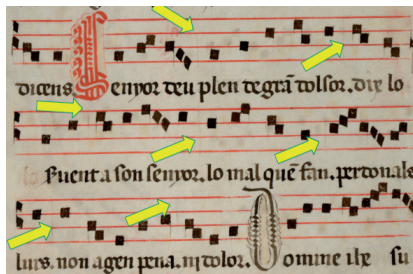 dicens. Senyor deu plen de grã dolsor. dix lo
Fuent a son senyor. lo mal quē fan. perdonals
lurs. non agen pena. ni dolor. Domine ihe su